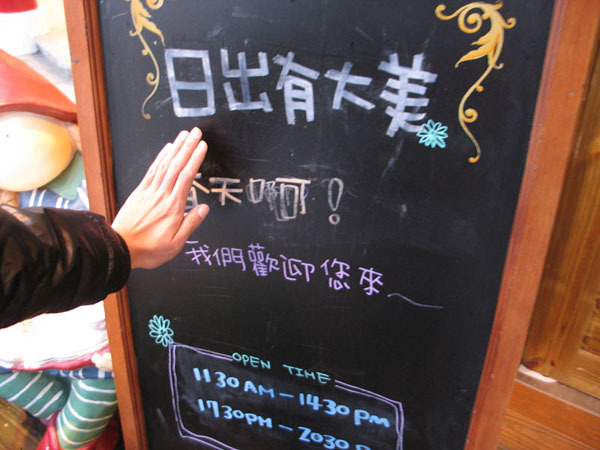 日出有大美
今天啊呵!
我們歡迎您來~
OPEN TIME
1130AM-1430PM
1730PM-2030P